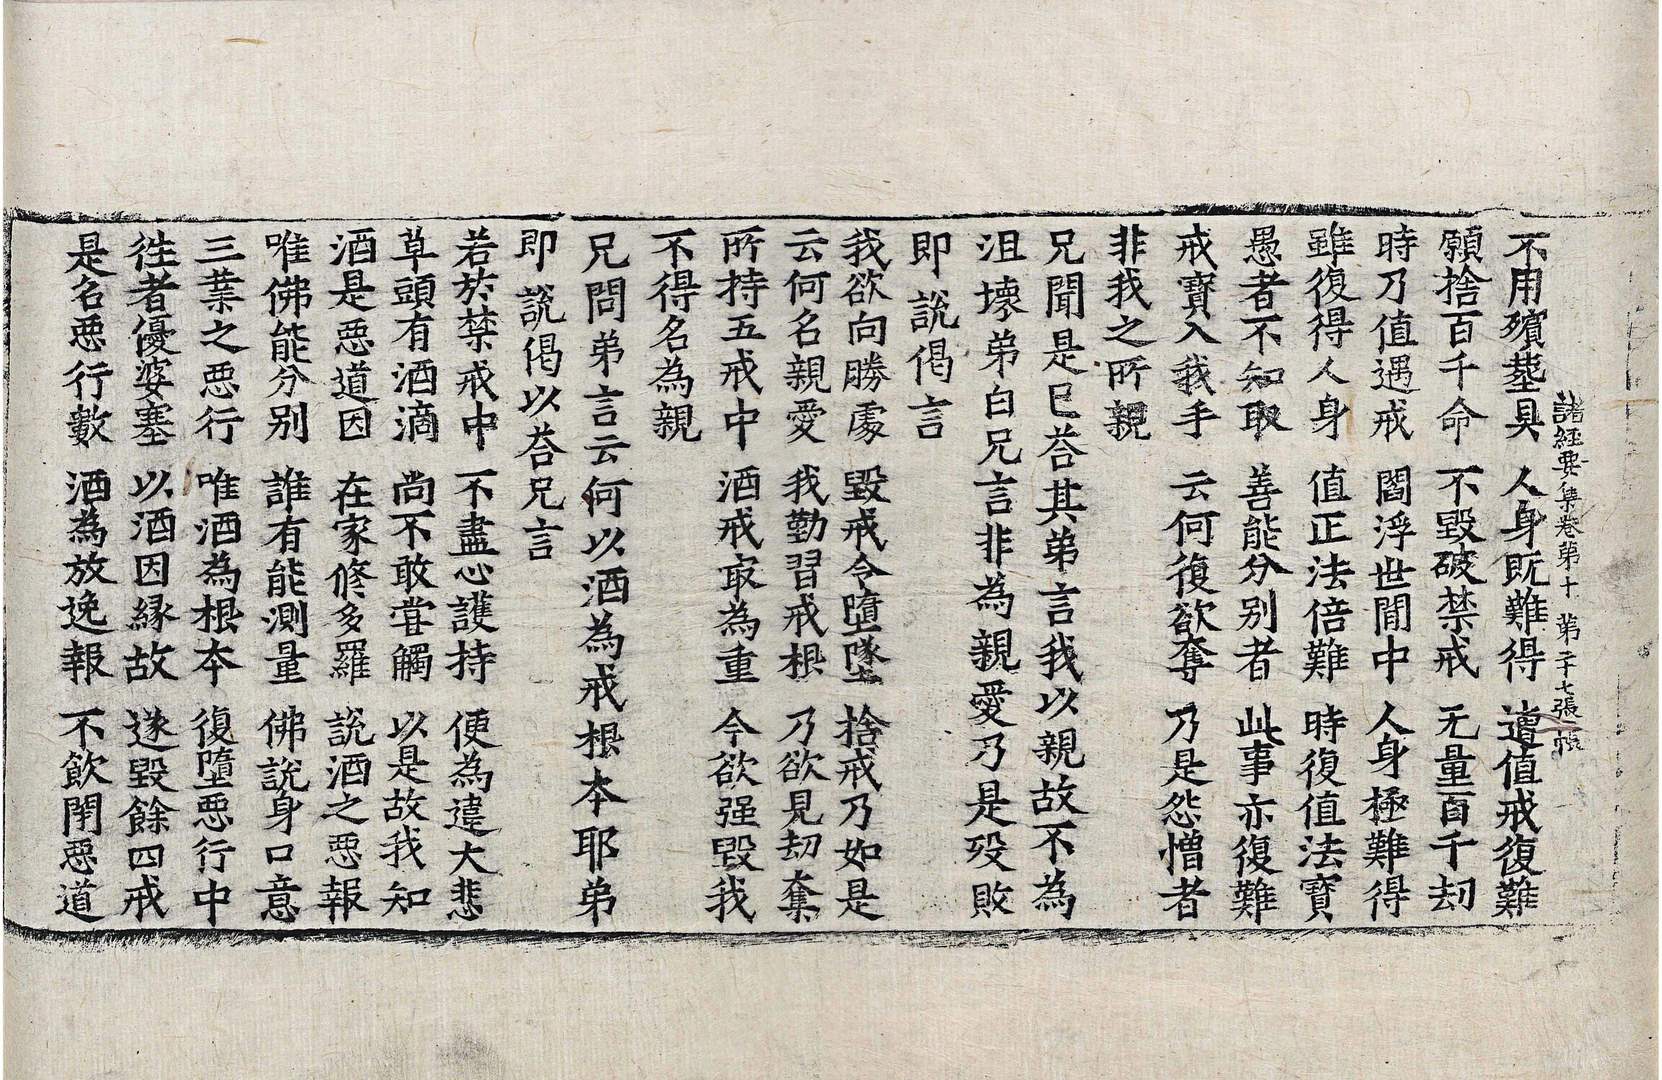 諸經要集卷第十 第二十七張 帳
不用殯塟具 人身既難得 遭值戒復難
願捨百千命 不毀破禁戒 无量百千刧
時乃值遇戒 閻浮世閒中 人身極難得
雖復得人身 值正法倍難 時復值法寳
愚者不知取 善能分別者 此事亦復難
戒寳入我手 云何復欲奪 乃是怨憎者
非我之所親
兄聞是已荅其弟言我以親故不為
沮壞弟白兄言非為親愛乃是歿敗
即說偈言
我欲向勝處 毀戒令墮墜 捨戒乃如是
云何名親愛 我勤習戒根 乃欲見刧奪
所持五戒中 酒戒㝡為重 今欲强毀我
不得名為親
兄問弟言云何以酒為戒根本耶弟
即說偈以荅兄言
若於禁戒中 不盡心護持 便為違大悲
草頭有酒滴 尚不敢甞觸 以是故我知
酒是惡道因 在家修多羅 說酒之惡報
唯佛能分別 誰有能測量 佛說身口意
三業之惡行 唯酒為根本 復墮惡行中
徃者優婆塞 以酒因縁故 遂毀餘四戒
是名惡行數 酒為放逸報 不飲閇惡道